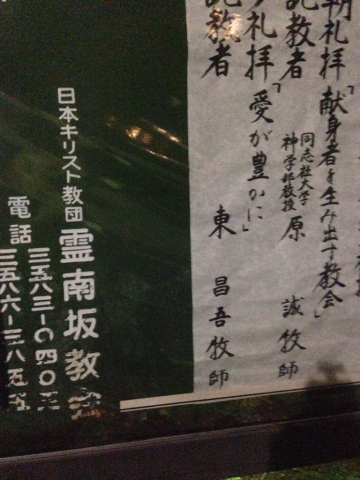 朝礼拝「献身者を生み出す教会」
説教者 同志社大学
神学部教授 原 誠牧師
夕礼拝「愛が豊かに」
説教者 東 昌吾牧師
日本キリスト教団 霊南坂教会
電話
三五八三-〇四〇三
三五八六-三八五五